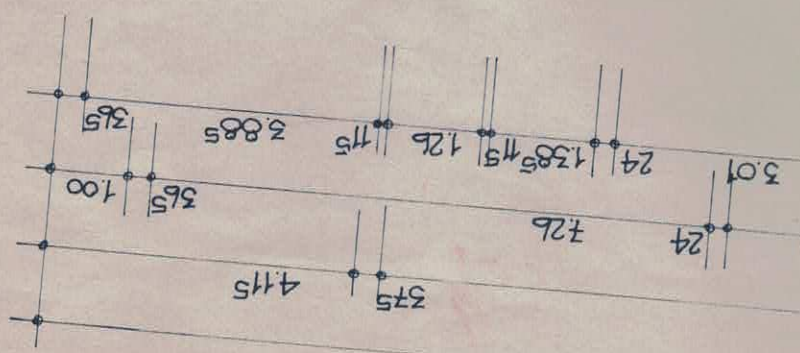 37⁵ 4.11⁵
24 7.26 36⁵ 1.00
3.01 24 1.38⁵ 11⁵ 1.26 11⁵ 3.88⁵ 36⁵